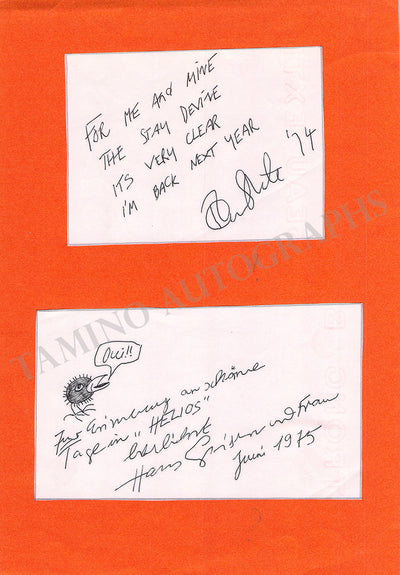 FOR ME AND MINE
THE STAY DEVINE
ITS VERY CLEAR
I'M BACK NEXT YEAR
'74
TAMINO AUTOGRAPHS
Oui!!
Zur Erinnerung an schöne
Tage in "HELIOS"
herzlichst
Hans und Frau
Juni 1975